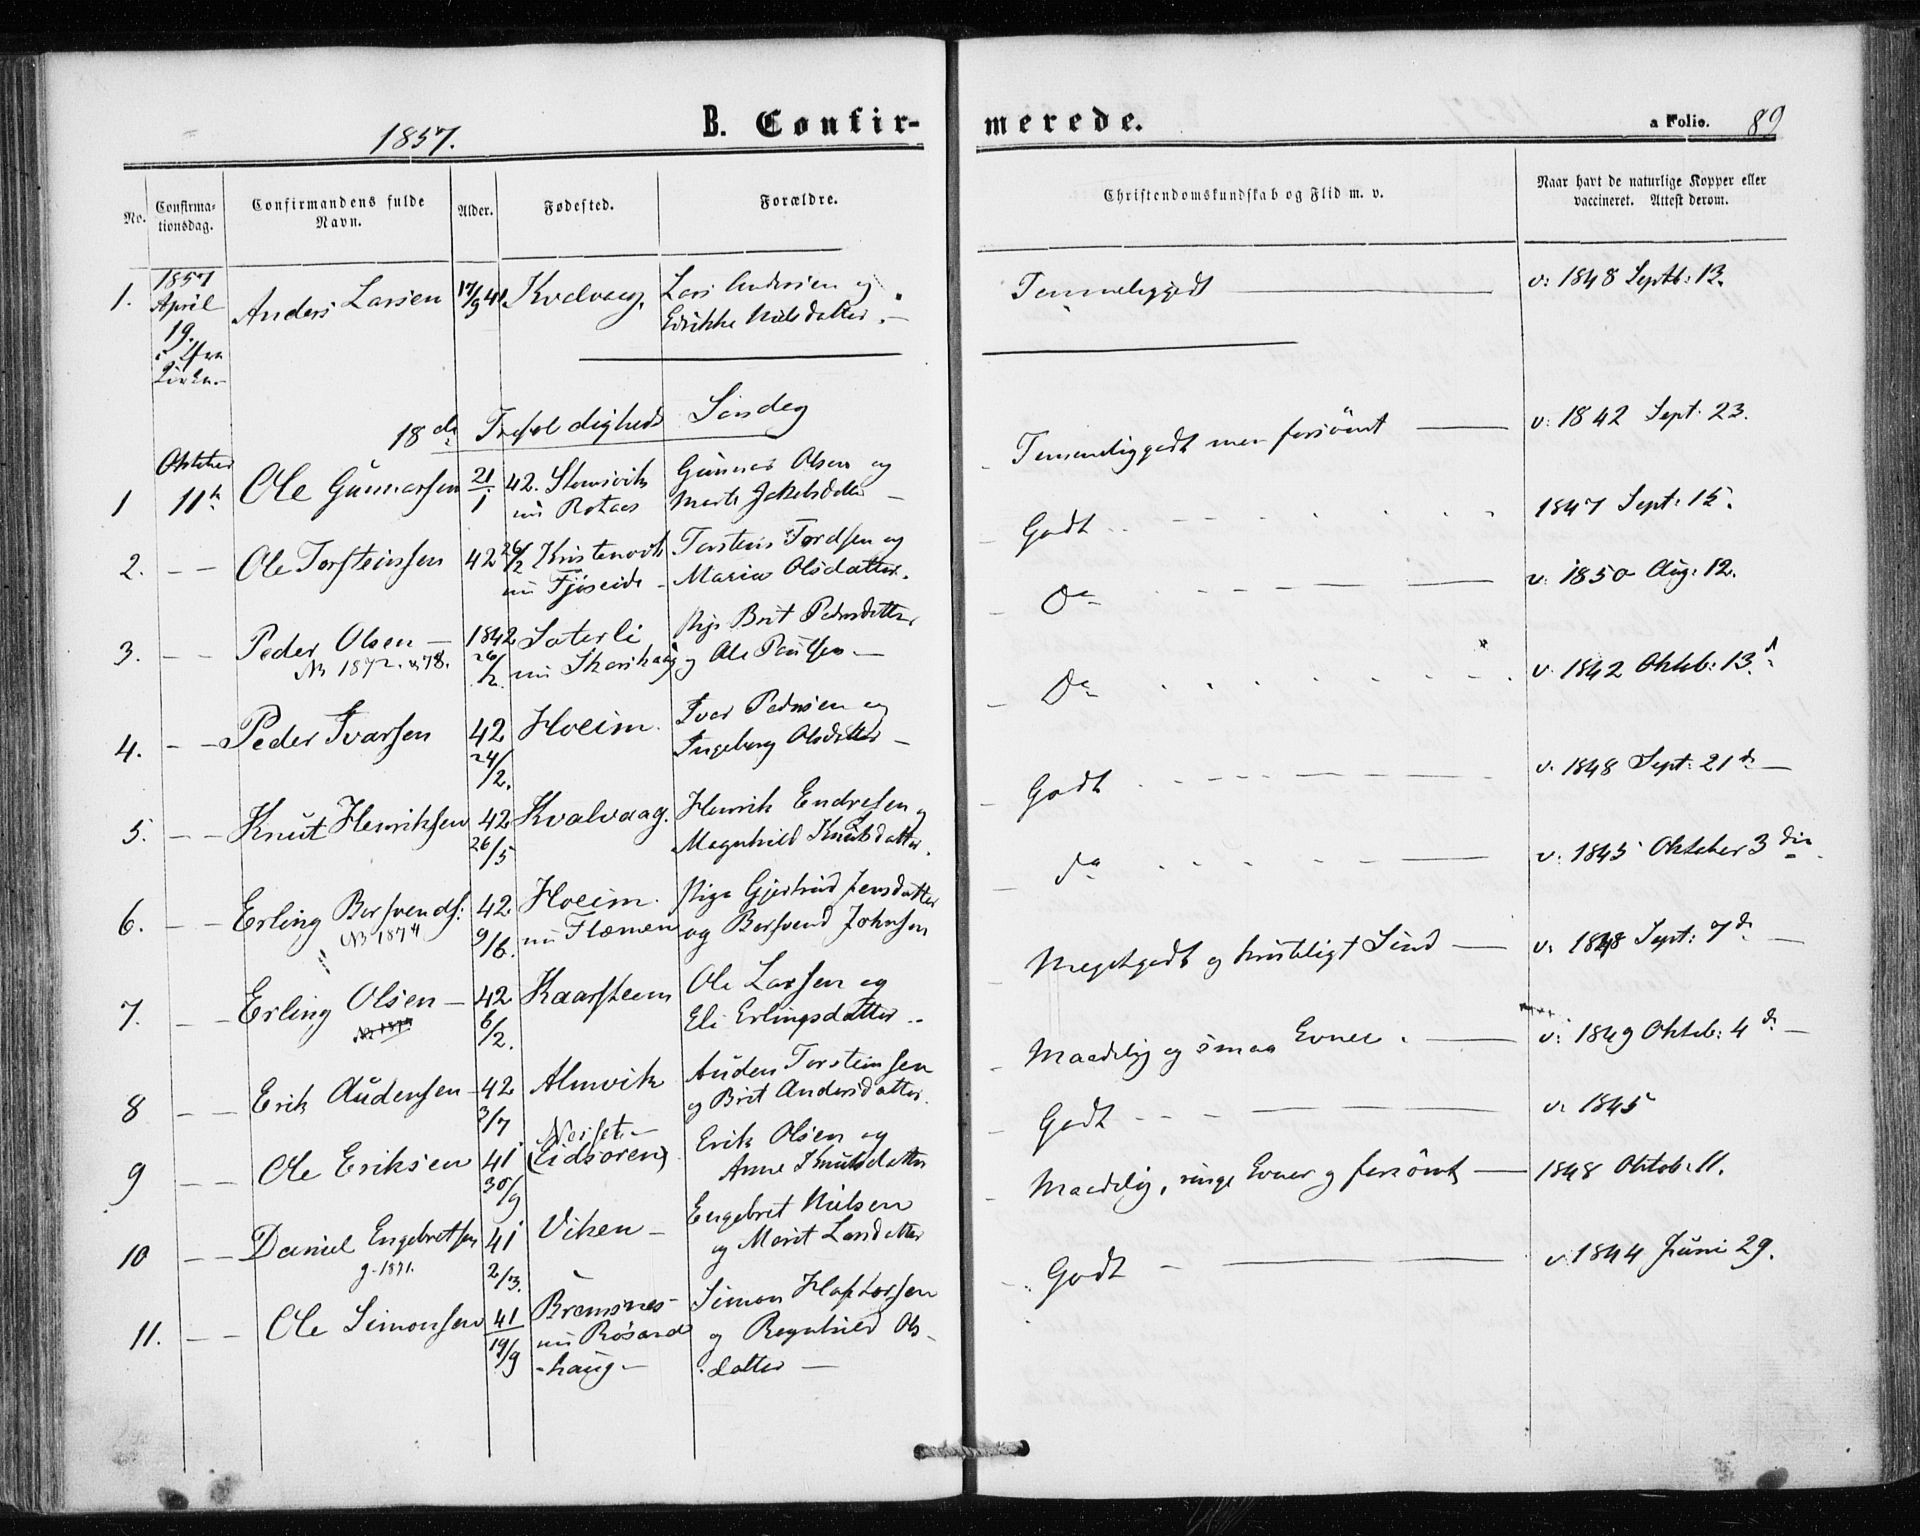 1857.
B. Confirmerede.
a Folio. 89
No.
Confirmationsdag.
Confirmandens fulde Navn.
Alder.
Fødested.
Forældre.
Christendomskundskab og Flid m. v.
Naar havt de naturlige Kopper eller vaccineret. Attest derom.
1. 1857 April 19. Anders Larsen 17/9 41 Kvalvaag. Lars Andersen og
Nilsdatter.
Temmeliggodt v: 1848 Septb: 13.
18de Trefoldigheds Søndag
Oktober
1 11te Ole Gunnarsen 21/1 42. Stensvik Gunnar Olsen og
nu Marit Jakobsdatter
Temmeliggodt men forsömt v: 1842 Sept: 23.
2. Ole Torsteinssen 42 26/2 Kristenvik Torstein Tordsen og
nu Fjøseide Maria Olsdatter.
Godt 1847 Sept: 15.
3. Peder Olsen 1842 26/2 Sæterli Pige Brit Pedersdatter
No 1872. & 78. nu Skarshaug og Ole Paulsen
Do v: 1850 Aug: 12.
4. Peder Ivarsen 42 24/2. Hoeim. Iver Pedersen og
Ingeborg Olsdatter
Do v: 1842 Oktob: 13d
5. Knut Henriksen 42 26/5 Kvalvaag. Henrik Endresen og
Magnhild Knutsdatter.
Godt v: 1848 Sept: 21d
6. Erling Bersvends: 42 9/6. Hoeim. Pige Gjertrud Jensdatter
No 1874 nu Flemen og Bersvend Johnsen
do v: 1845 Oktober 3die
7. Erling Olsen 42 6/2. Kaarsteen Ole Larsen og
Eli Erlingsdatter
Megetgodt og kristeligt Sind v: 1848 Sept: 7d
8 Erik Audensen 42 3/7 Almvik Auden Torsteinsen
og Brit Andersdatter.
Maadelig og smaa Evner. v: 1849 Oktob: 4d
9 Ole Eriksen 41 30/9 Neiset (Eidsøren) Erik Olsen og
Anne Knutsdatter
Godt v: 1845
10 Daniel Engebretsen 41 2/3. Viken Engebret Nielsen
g. 1871. og Marit Larsdatter
Maadelig, ringe Evner og forsömt 1848 Oktob: 11.
11. Ole Simonsen 41 19/9 Bremsnes Simon Haftorsen
nu Røsand og Ragnhild Ols-
-haug datter
Godt v: 1844 Juni 29.